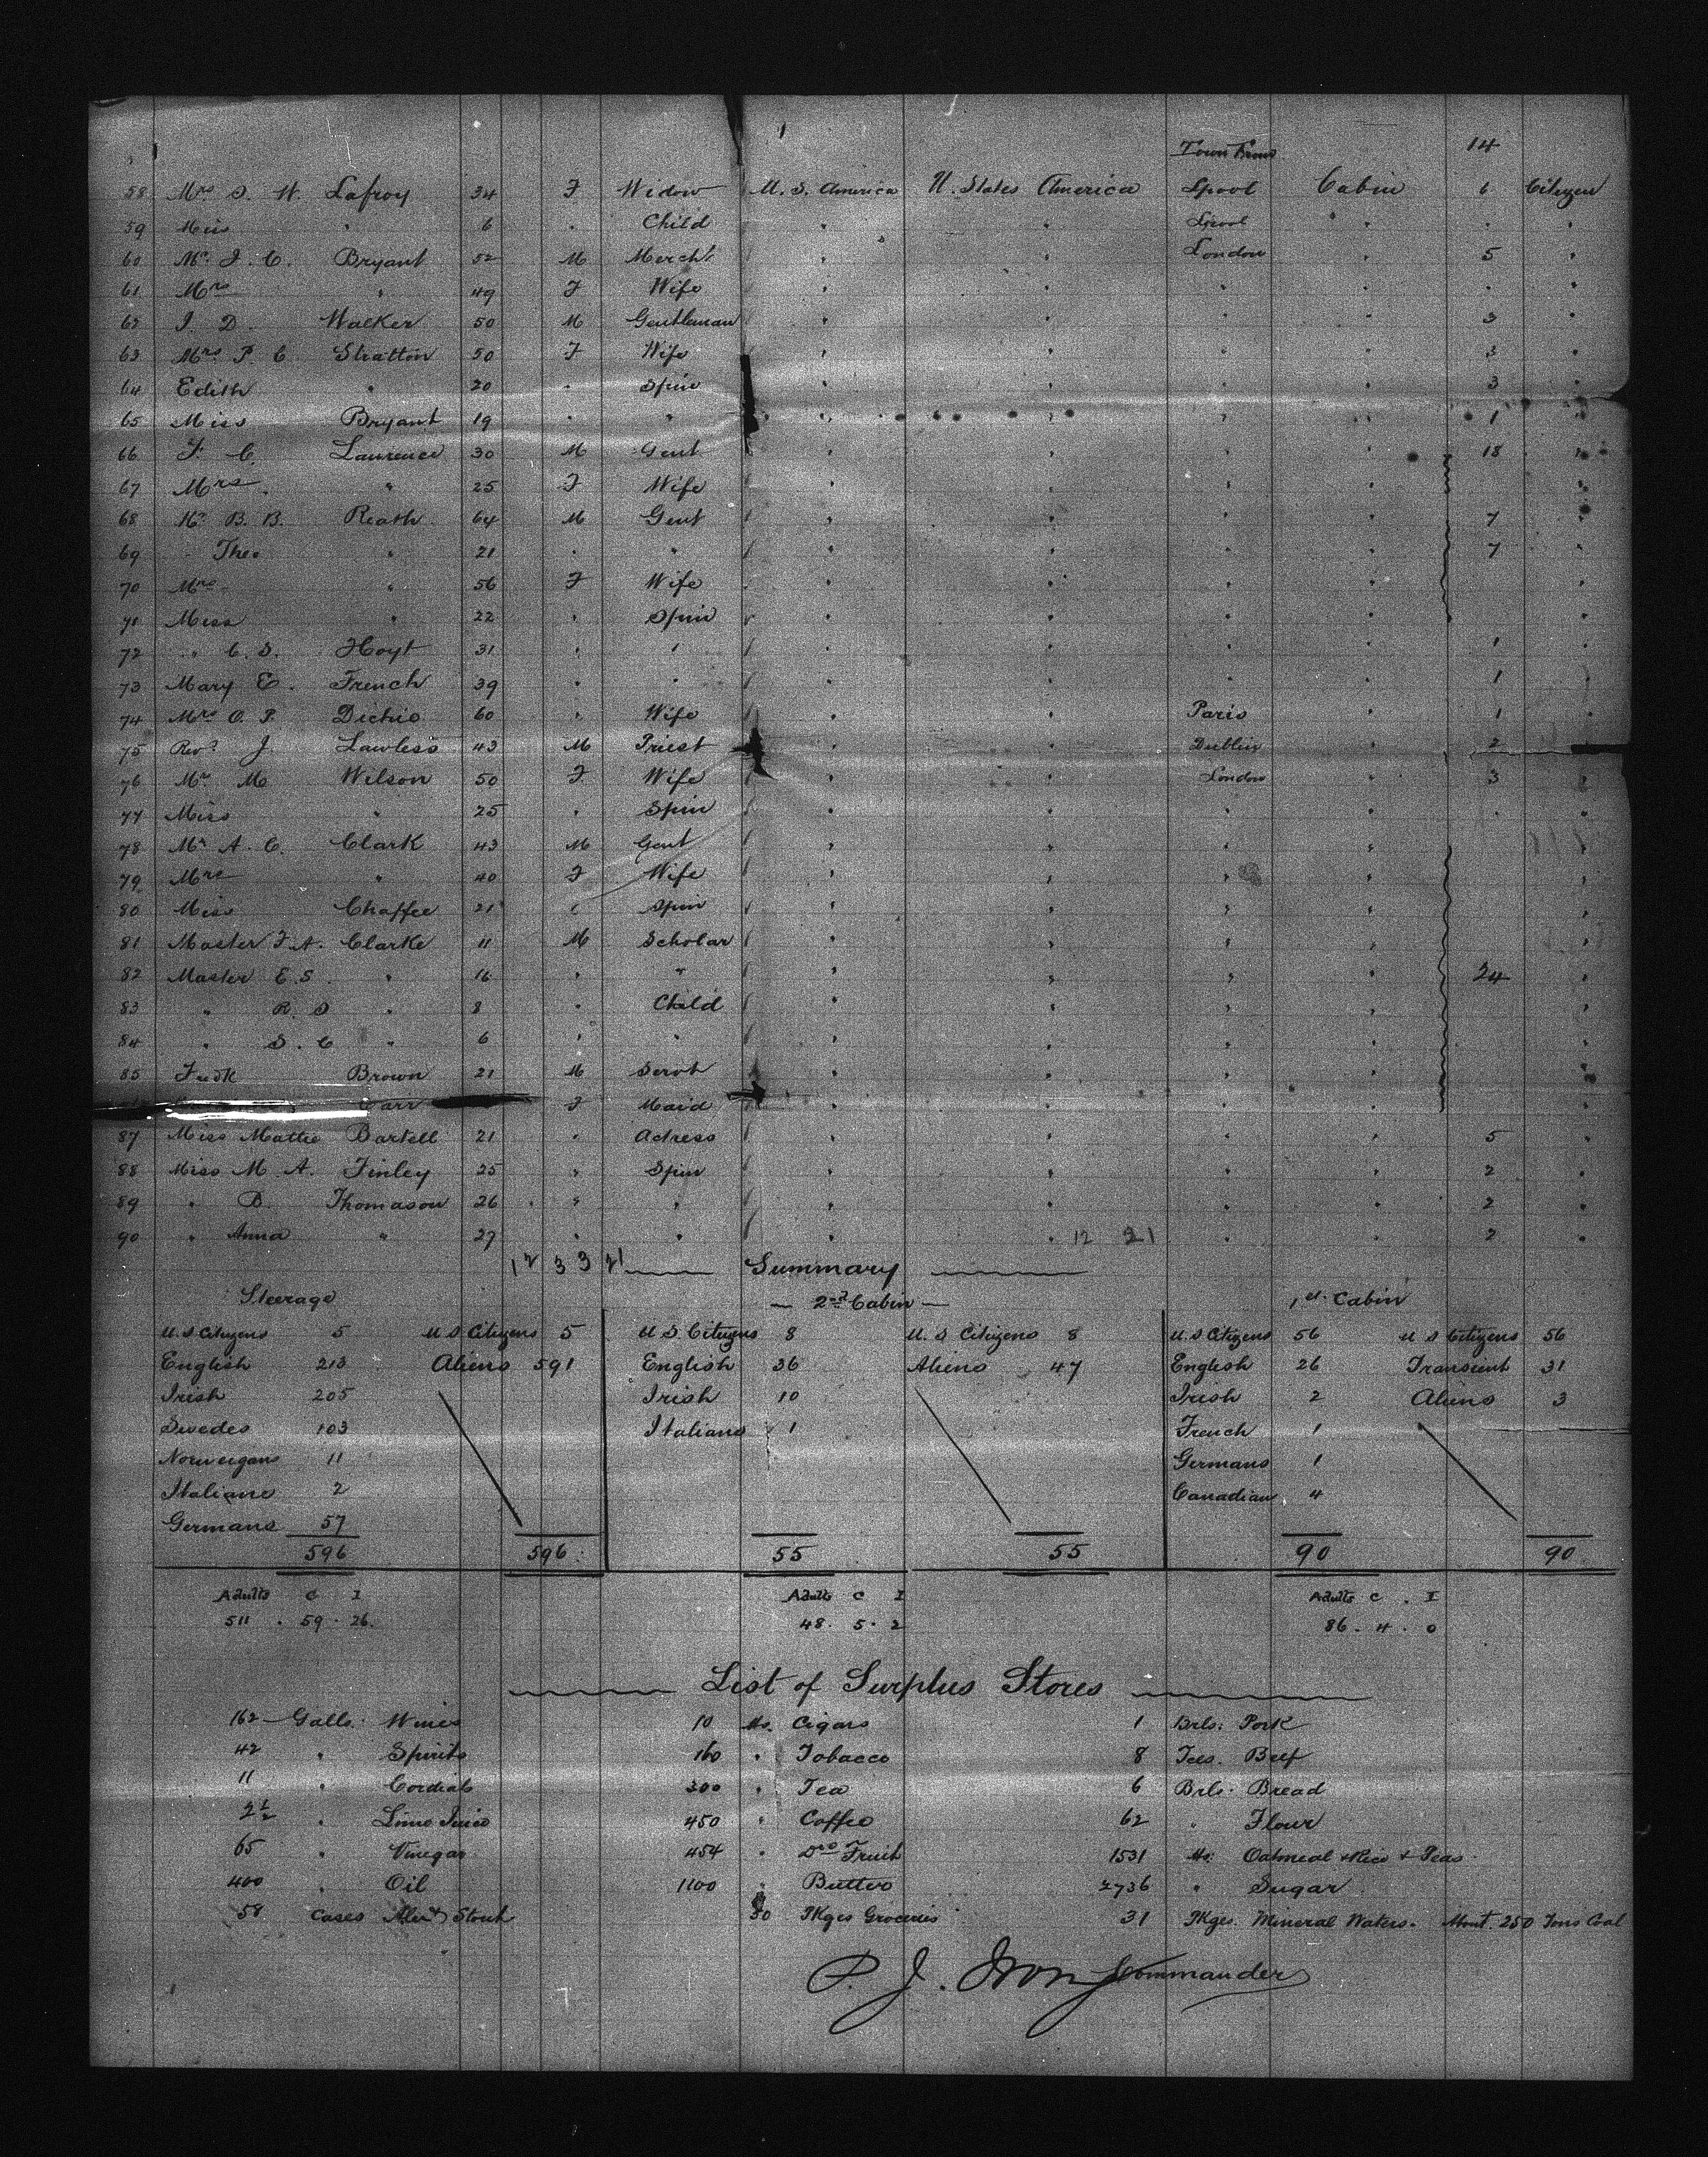 Town From 14
58 Mrs S. W. Lafroy 34 F Widow U. S. America U. States America Lpool Cabin 6 Citizen
59 Miss " 6 " Child " " Lpool " " "
60 Mr. J. C. Bryant 52 M Mercht " " London " 5 "
61 Mrs " 49 F Wife " " " " " "
62 J. D. Walker 50 M Gentleman " " " " 3 "
63 Mrs P. C. Stratton 50 F Wife " " " " 3 "
64 Edith " 20 " Spin " " " " 3 "
65 Miss Bryant 19 " " " " " " 1 "
66 F. C. Laurence 30 M Gent " " " " 18 "
67 Mrs. " 25 F Wife " " " " "
68 Mr B. B. Reath 64 M Gent " " " " 7 "
69 Theo " 21 " " " " " " 7 "
70 Mrs " 56 F Wife " " " " "
71 Miss " 22 " Spin " " " " "
72 " C. S. Hoyt 31 " " " " " " 1 "
73 Mary E. French 39 " " " " " " 1 "
74 Mrs O. P. 60 " Wife " " Paris " 1 "
75 Revd J. Lawless 43 M Priest " " Dublin " 2
76 Mr M Wilson 50 F Wife " " London " 3 "
77 Miss " 25 " Spin " " " " " "
78 Mr A. C. Clark 43 M Gent " " " " "
79 Mrs " 40 F Wife " " " " "
80 Miss Chaffee 21 " Spin " " " " "
81 Master F. A. Clarke 11 M Scholar " " " " "
82 Master E. S. " 16 " " " " " " 24 "
83 " R. S " 8 " Child " " " " "
84 " S. C " 6 " " " " " " "
85 Fredk Brown 21 M Servt " " " " "
F Maid " " " " "
87 Miss Mattie Bartell 21 " Actress " " " " 5 "
88 Miss M. A. Finley 25 " Spin " " " " 2 "
89 " B. Thomason 26 " " " " " " 2 "
90 " Anna " 27 " " " " 12 21 " " 2 "
12 3 3 21 Summary
Steerage 2nd Cabin 1st Cabin
U. S Citizens 5 U S Citizens 5 U S Citizens 8 U. S Citizens 8 U. S Citizens 56 U S Citizens 56
English 213 Aliens 591 English 36 Aliens 47 English 26 Transient 31
Irish 205 Irish 10 Irish 2 Aliens 3
Swedes 103 Italians 1 French 1
Norweigans 11 Germans 1
Italians 2 Canadian 4
Germans 57
596 596 55 55 90 90
Adults C I Adults C I Adults C. I
511. 59. 26. 48. 5. 2 86. 4. 0
List of Surplus Stores
162 Galls. Wines 10 lbs. Cigars 1 Brls: Pork
42 " Spirits 160 " Tobacco 8 Tces. Beef
11 " Cordials 300 " Tea 6 Brls. Bread
2½ " Lime Juice 450 " Coffee 62 " Flour
65 " Vinegar 454 " Dro Fruit 1531 lbs: Oatmeal + Rice + Peas
400 " Oil 1100 " Butter 2736 " Sugar
58 Cases Ale & Stout 50 Pkges Groceries 31 Pkges. Mineral Waters. About 250 Tons Coal
P. J. Irving Commander